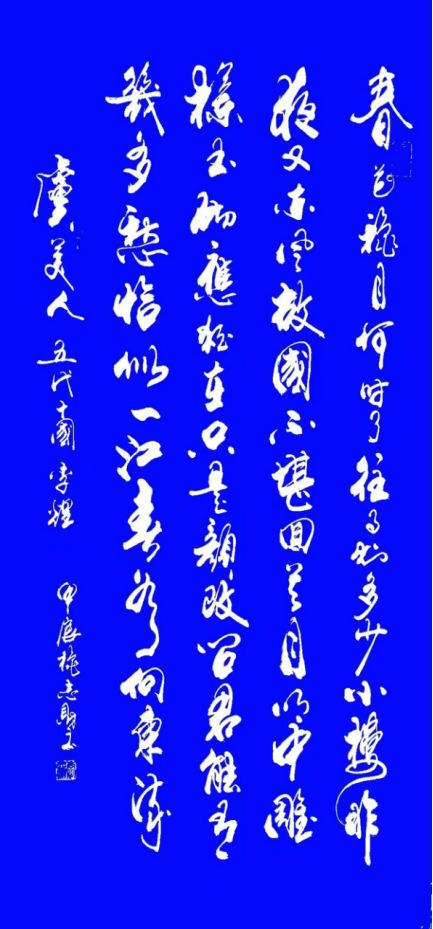 春花秋月何时了往事知多少小樓昨
夜又东风故國不堪回首月明中雕
欄玉砌應猶在只是顏改问君能有
幾多愁恰似一江春水向東流
虞美人 五代十國 李煜 甲辰